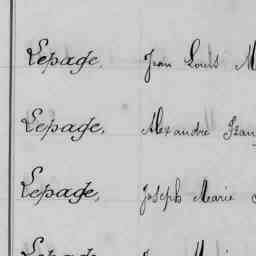 Lepage, Jean Louis M
Lepage, Alexandre Jean
Lepage, Joseph Marie
Lepage,